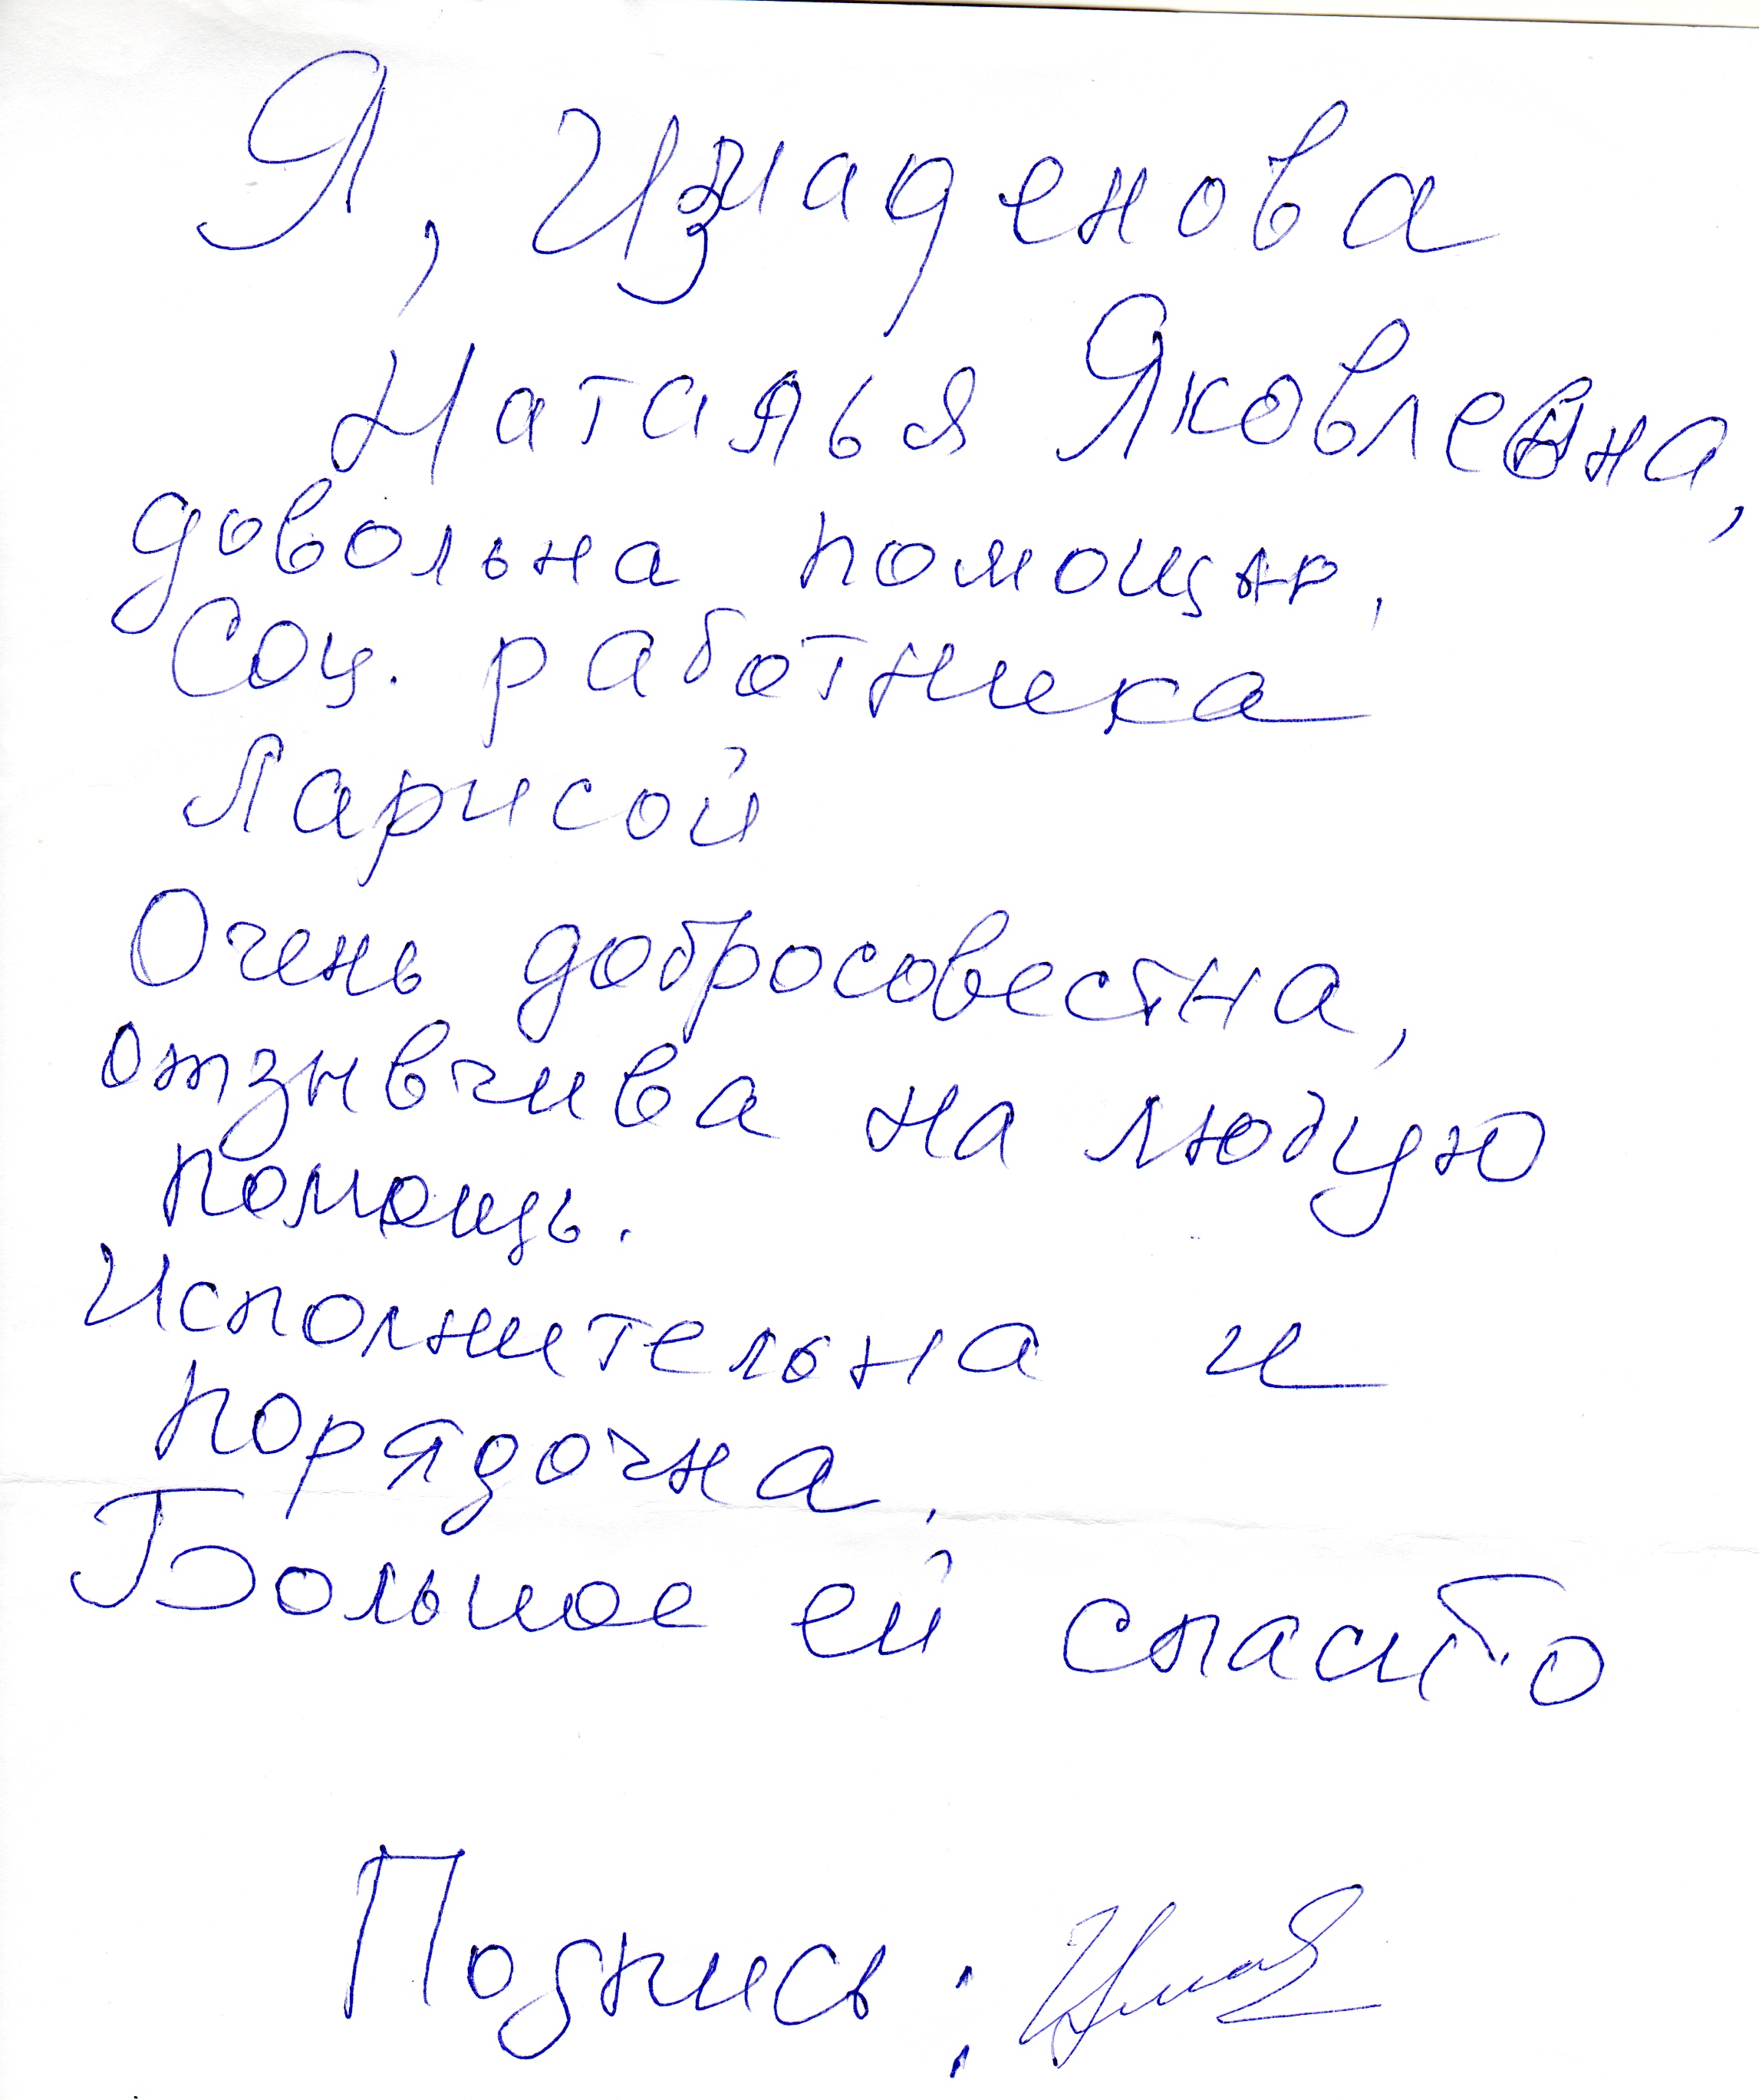 Я, Измаденова
Наталья Яковлевна,
довольна помощью,
Соц. работника
Ларисой
Очень добросовестна,
отзывчива на любую
помощь.
Исполнительна и
порядочна.
Большое ей спасибо
Подпись: